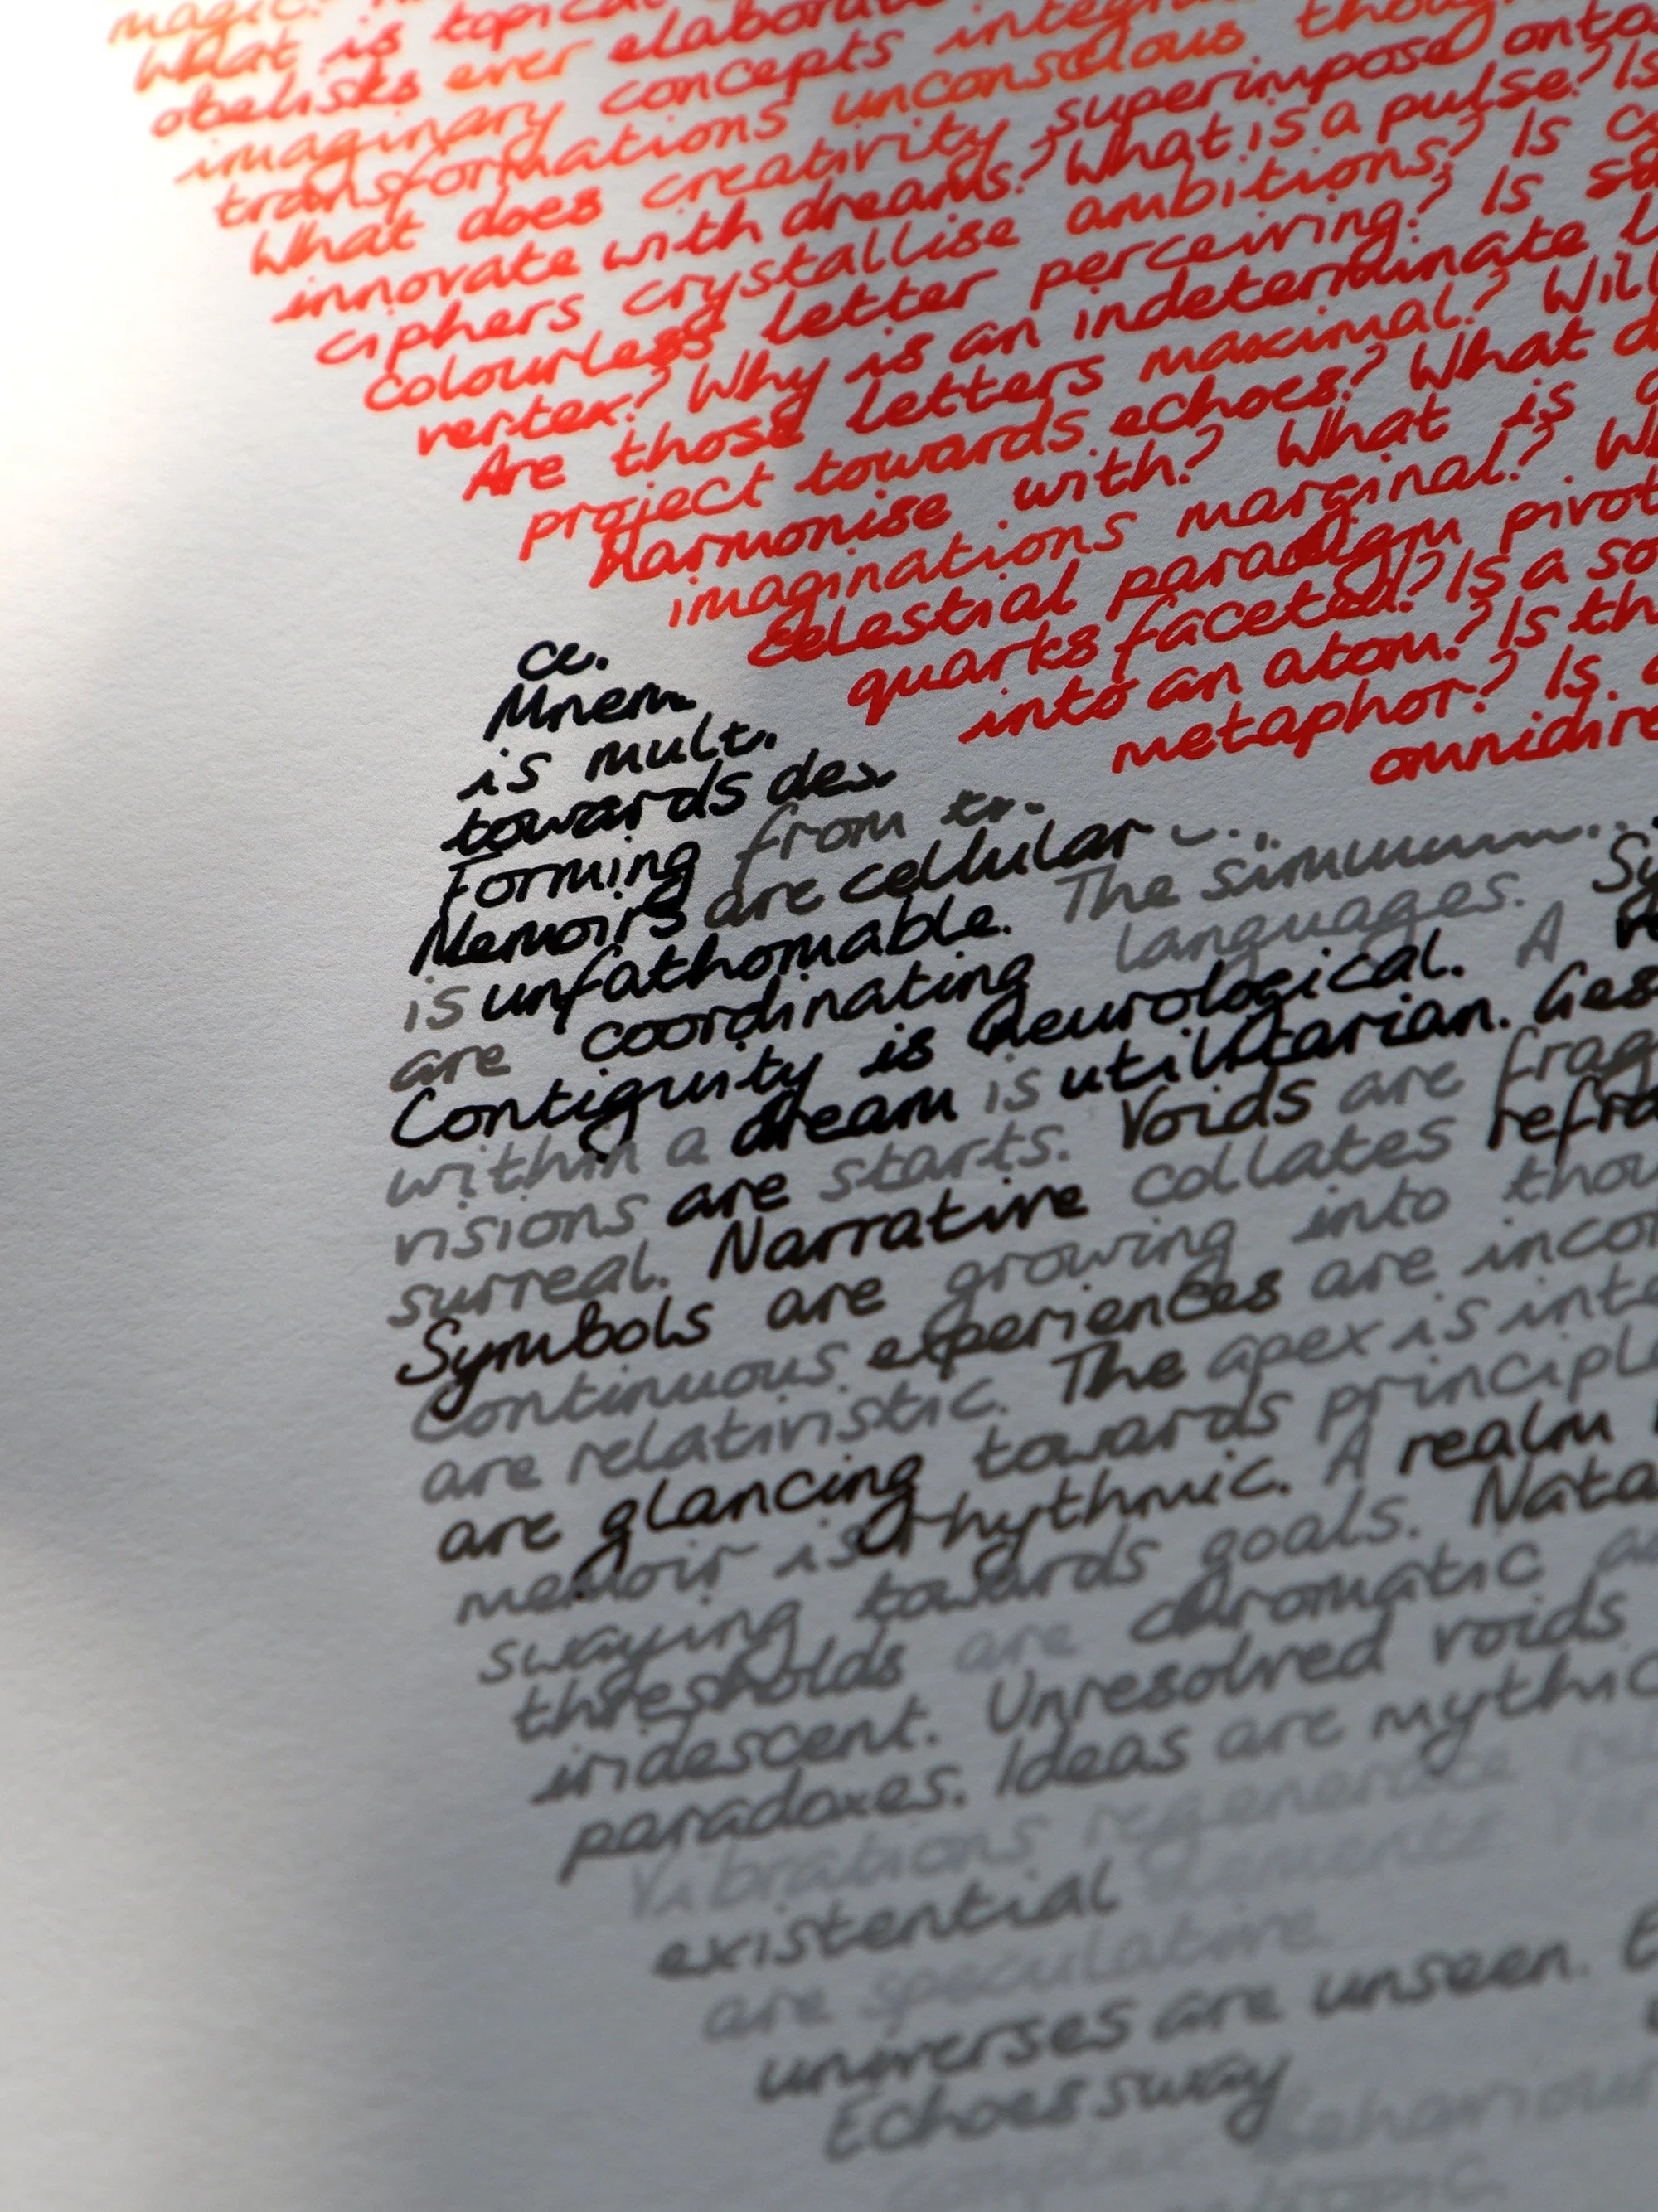 magic.
What is topical
obelisks ever elaborate
imaginary concepts
transformations unconscious
What does creativity superimpose onto
innovate with dreams? What is a pulse? Is
ciphers crystallise ambitions? Is
colourless letter perceiving? Is
vertex? Why is an indeterminate
Are those letters maximal? Will
project towards echoes? What
harmonise with? What is
imaginations marginal?
celestial paradigm pivot
quarks faceted? Is a
into an atom? Is
metaphor? Is
omnidire
ce.
Mnem
is mult.
towards des
Forming from tr.
Memoirs are cellular
is unfathomable. The
are coordinating languages. Sy
Contiguity is neurological. A
within a dream is utilitarian. Ges
visions are starts. Voids are frag
surreal. Narrative collates refra
Symbols are growing into thou
Continuous experiences are incor
are relativistic. The apex is inte
are glancing towards principle
memoir is rhythmic. A realm
swaying towards goals. Nata
thresholds are chromatic
iridescent. Unresolved voids
paradoxes. Ideas are mythic
Vibrations regenerate
existential elements
are speculative
universes are unseen. E
Echoes sway
complex behaviour